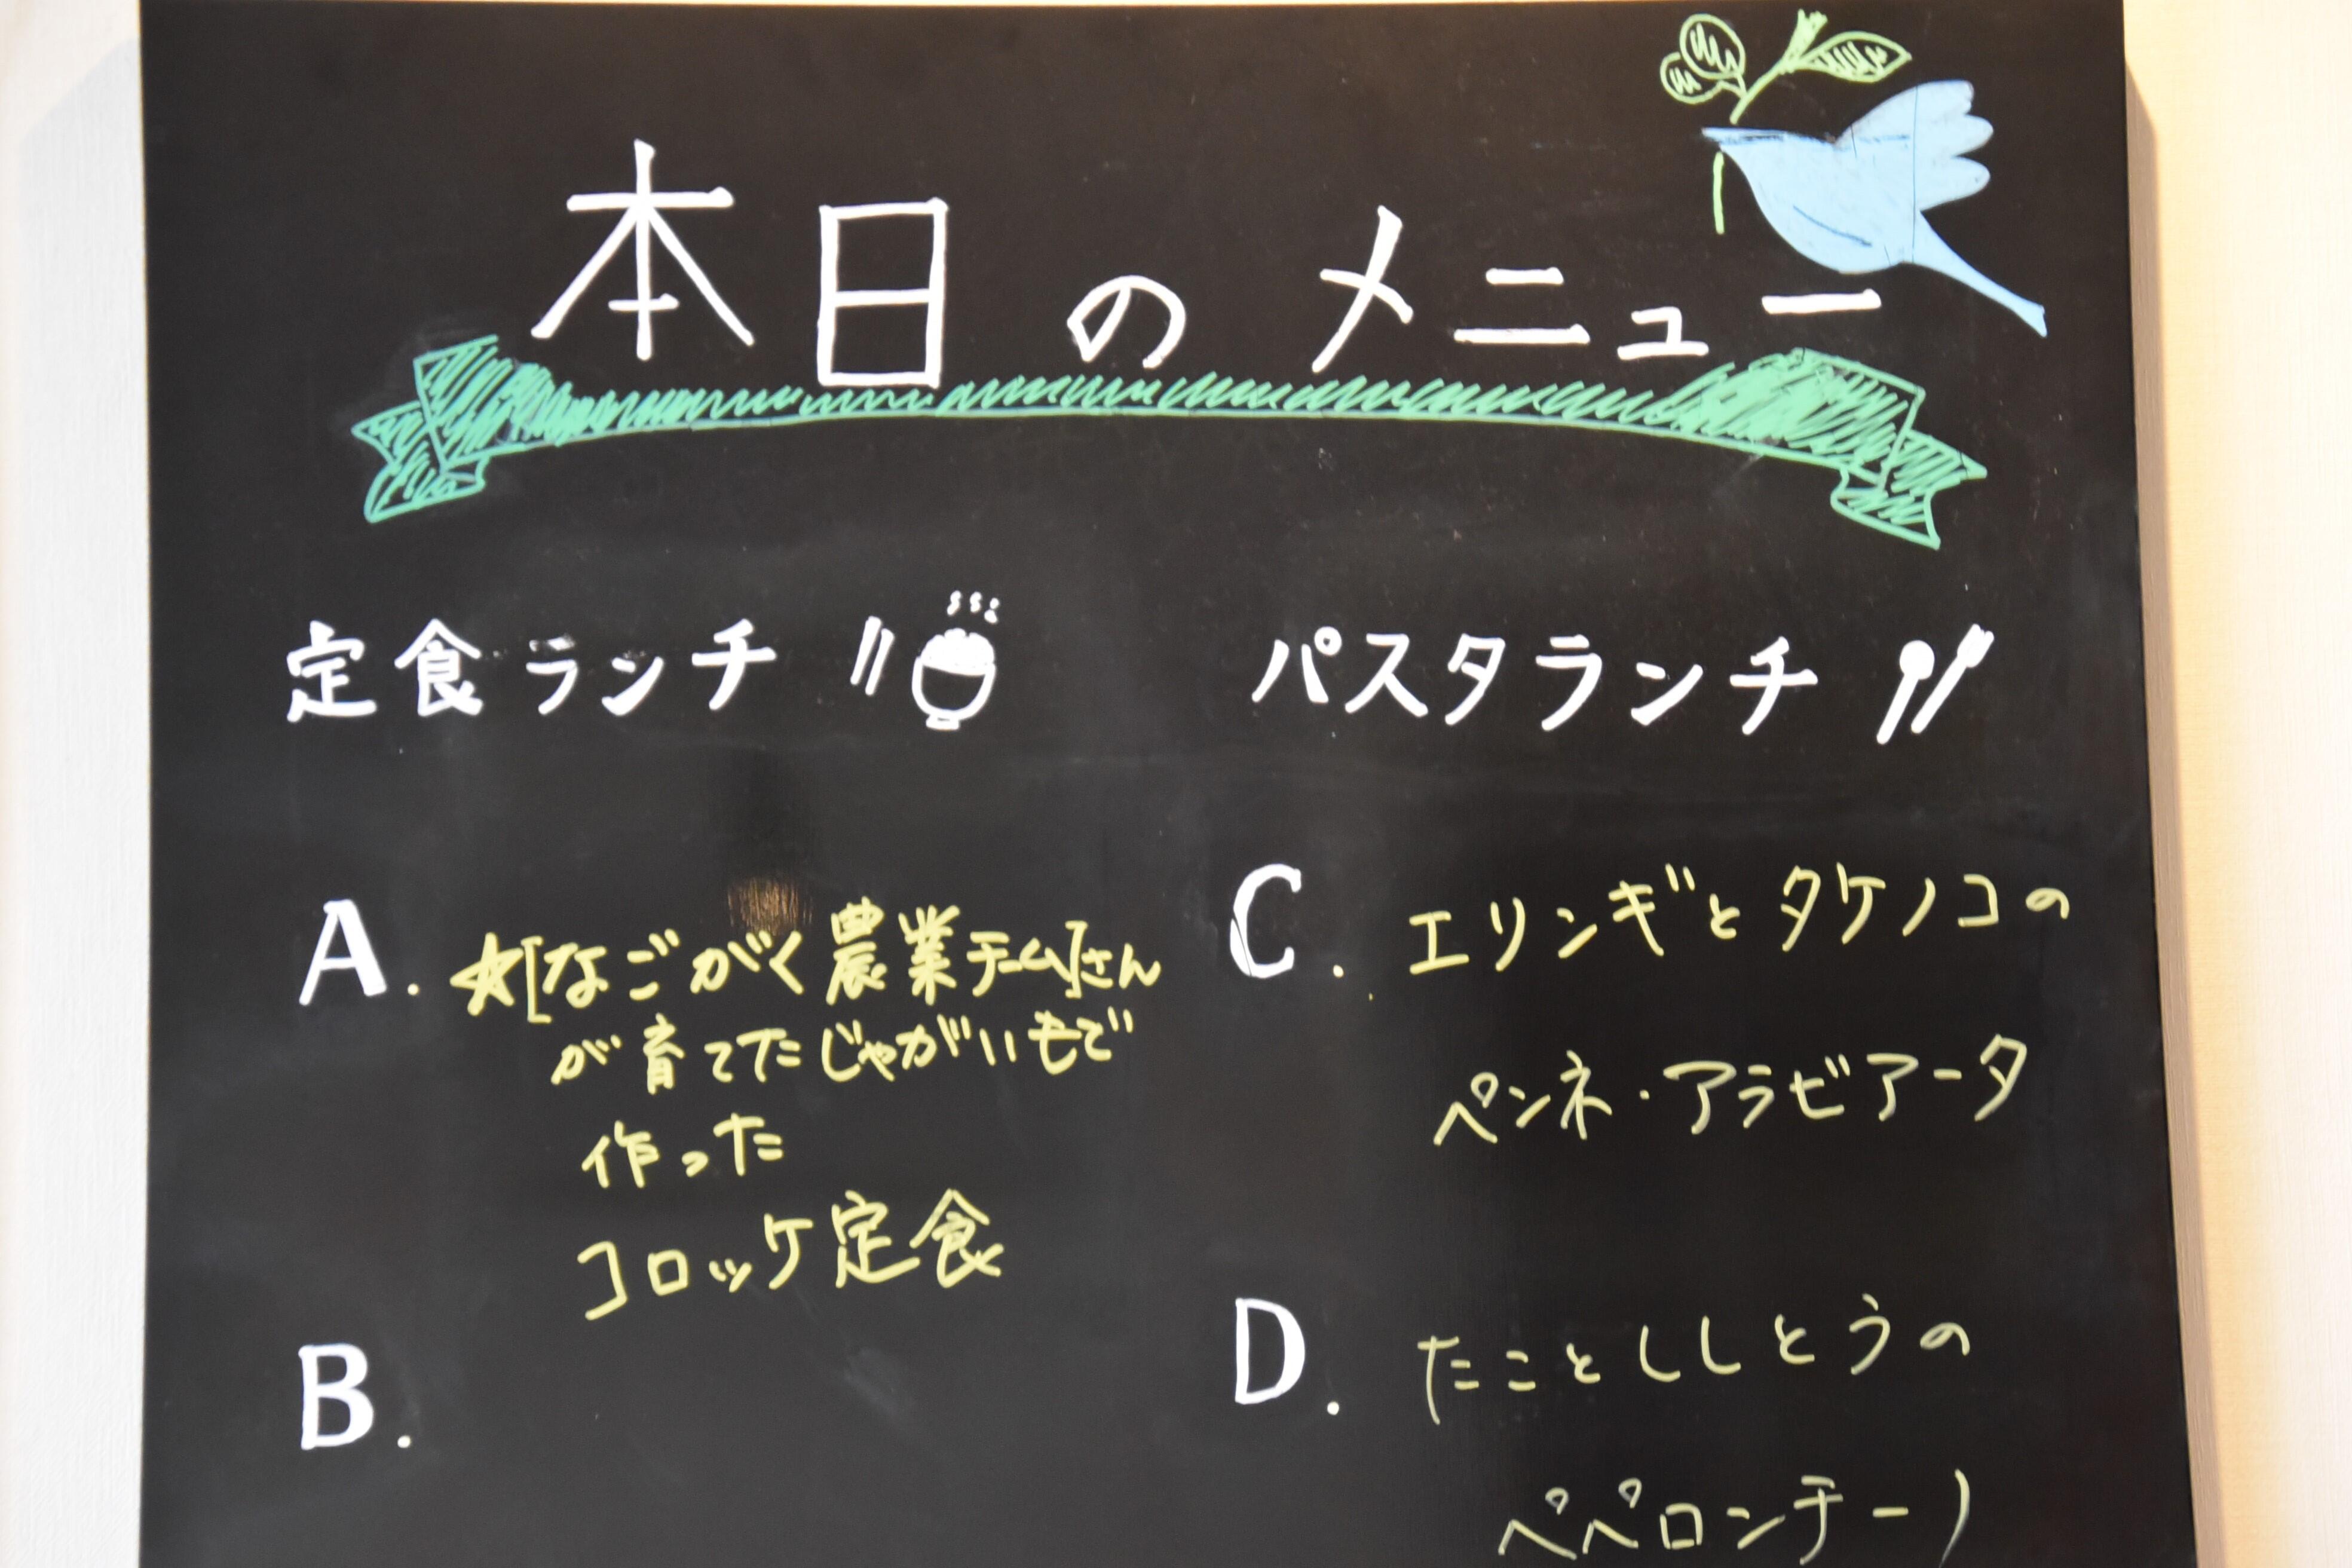 本日のメニュー
定食ランチ
A. ★[なごがく農業チーム]さん
が育てたじゃがいもで
作った
コロッケ定食
B.
パスタランチ
C. エリンギとタケノコの
ペンネ・アラビアータ
D. たことししとうの
ペペロンチーノ